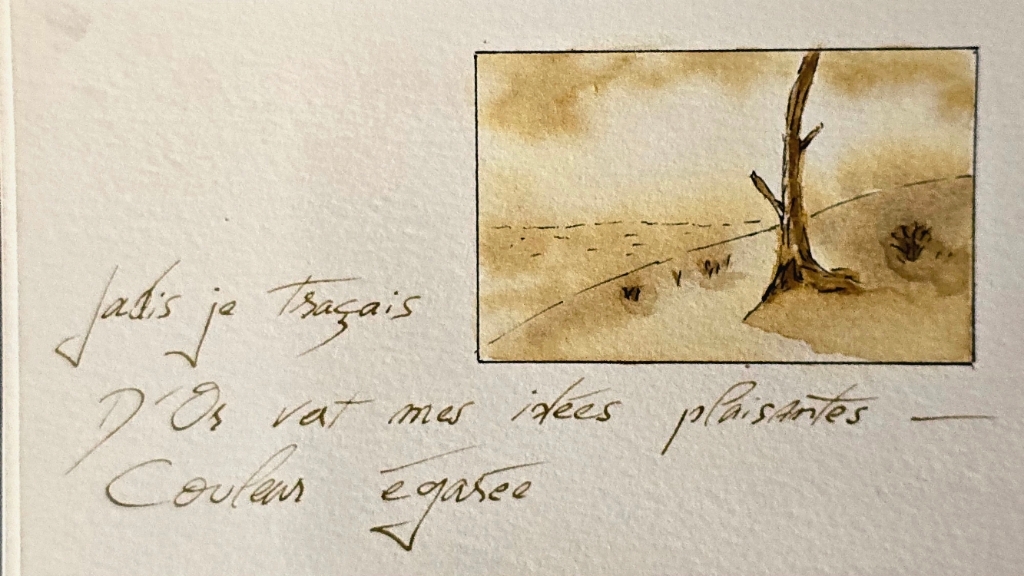 Jadis je traçais
D'Or vert mes idées plaisantes —
Couleur égarée